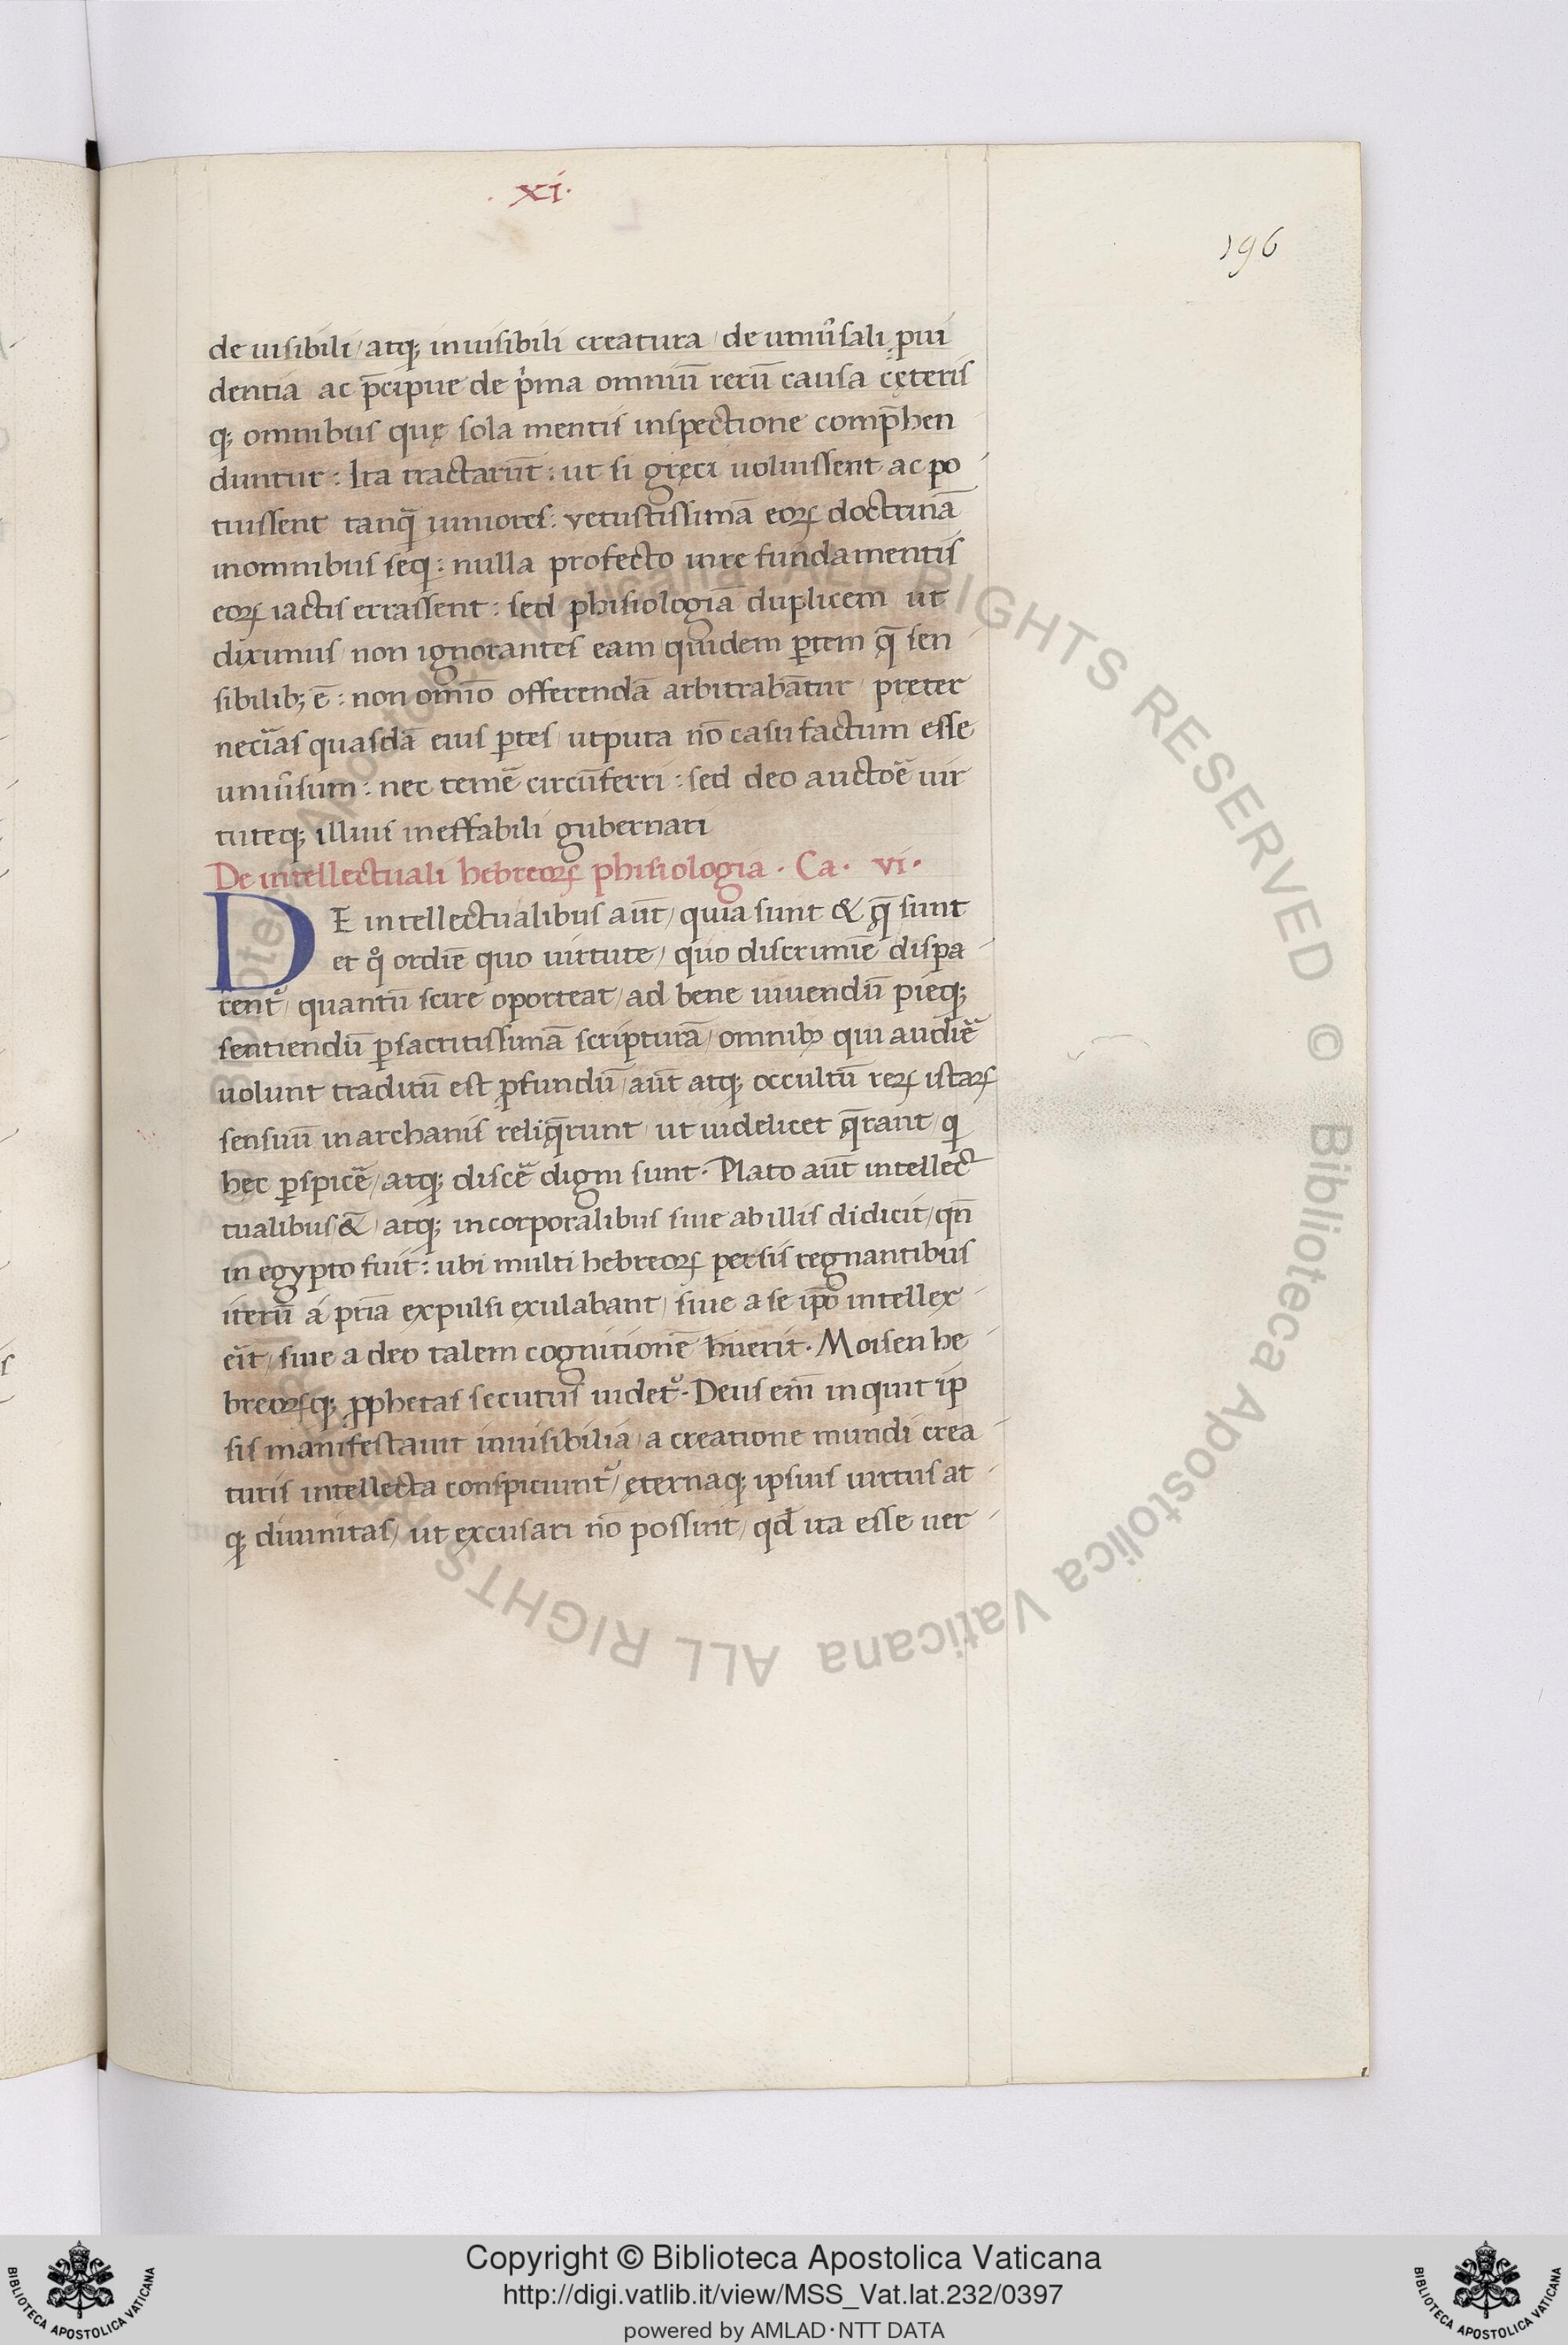 . xi.
196
de uisibili / atq; inuisibili creatura / de uniũsali ꝓui
dentia ac p̄cipue de p̾ma omniū rerū causa cęteris
q; omnibus quę sola mentis inspectione comp̄hen
duntur : Ita tractarūt : ut si gręci uoluissent ac po
tuissent tanq̄ iuniores : vetustissimā eoꝝ doctrinā
inomnibus seq : nulla profecto inre fundamentis
eoꝝ iactis errassent : sed phisiologiā duplicem ut
diximus / non ignorantes eam quidem ꝑtem q̄ sen
sibilib; ē : non omīo offerendā arbitrabātur / pręter
necīas quasdā eius ꝑtes / utputa nō casu factum esse
uniũsum : nec temē circūferri : sed deo auctoē uir
tuteq; illius ineffabili gubernari
De intellectuali hebreoꝝ phisiologia . Ca . vi .
DE intellectualibus aūt / quia sunt & q̄ sunt
et qͦ ordīe quo uirtute / quo discrimīe dispa
rent᷑ / quantū scire oporteat / ad bene uiuendū pieq;
sentiendū ꝑsacritissimā scripturā / omnibꝰ qui audiē
uolunt traditū est ꝓfundū / aūt atq; occultū reꝝ istaꝝ
sensuū in archanis reliq̄runt / ut uidelicet q̄rant / q
hec ꝑspicē / atq; discē digni sunt . Plato aūt intellec
tualibus & / atq; incorporalibus siue ab illis didicit / qn̄
in egypto fuit : ubi multi hebreoꝝ persis regnantibus
iterū á pr̄ia expulsi exulabant / siue a se ip̄o intellex
eīt / siue a deo talem cognitionē h̄uerit . Moisen he
breoꝝq; ꝓphetas secutus uidet᷑ . Deus em̄ inquit ip
sis manifestauit inuisibilia / a creatione mundi crea
turis intellecta conspiciunt᷑ / ęternaq; ipsius uirtus at
q; diuinitas / ut excusari nō possint / qd̄ ita esse uer
Copyright © Biblioteca Apostolica Vaticana
http://digi.vatlib.it/view/MSS_Vat.lat.232/0397
powered by AMLAD·NTT DATA
BIBLIOTECA APOSTOLICA VATICANA
BIBLIOTECA APOSTOLICA VATICANA
© Biblioteca Apostolica Vaticana ALL RIGHTS RESERVED
© Biblioteca Apostolica Vaticana ALL RIGHTS RESERVED